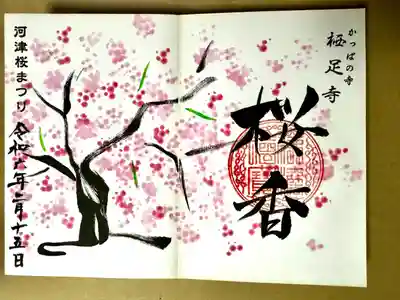 かっぱの寺
栖足寺
桜香
河津桜まつり
令和六年二月十五日